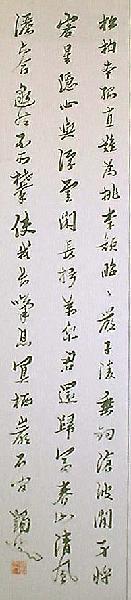 松柏本孤直難為桃李顏昭々嚴子陵垂釣滄波間身將
客星隱心與浮雲閑長揖萬乘君還歸富春山清風
灑六合邈然不可攀使我長嘆息冥栖巖石間